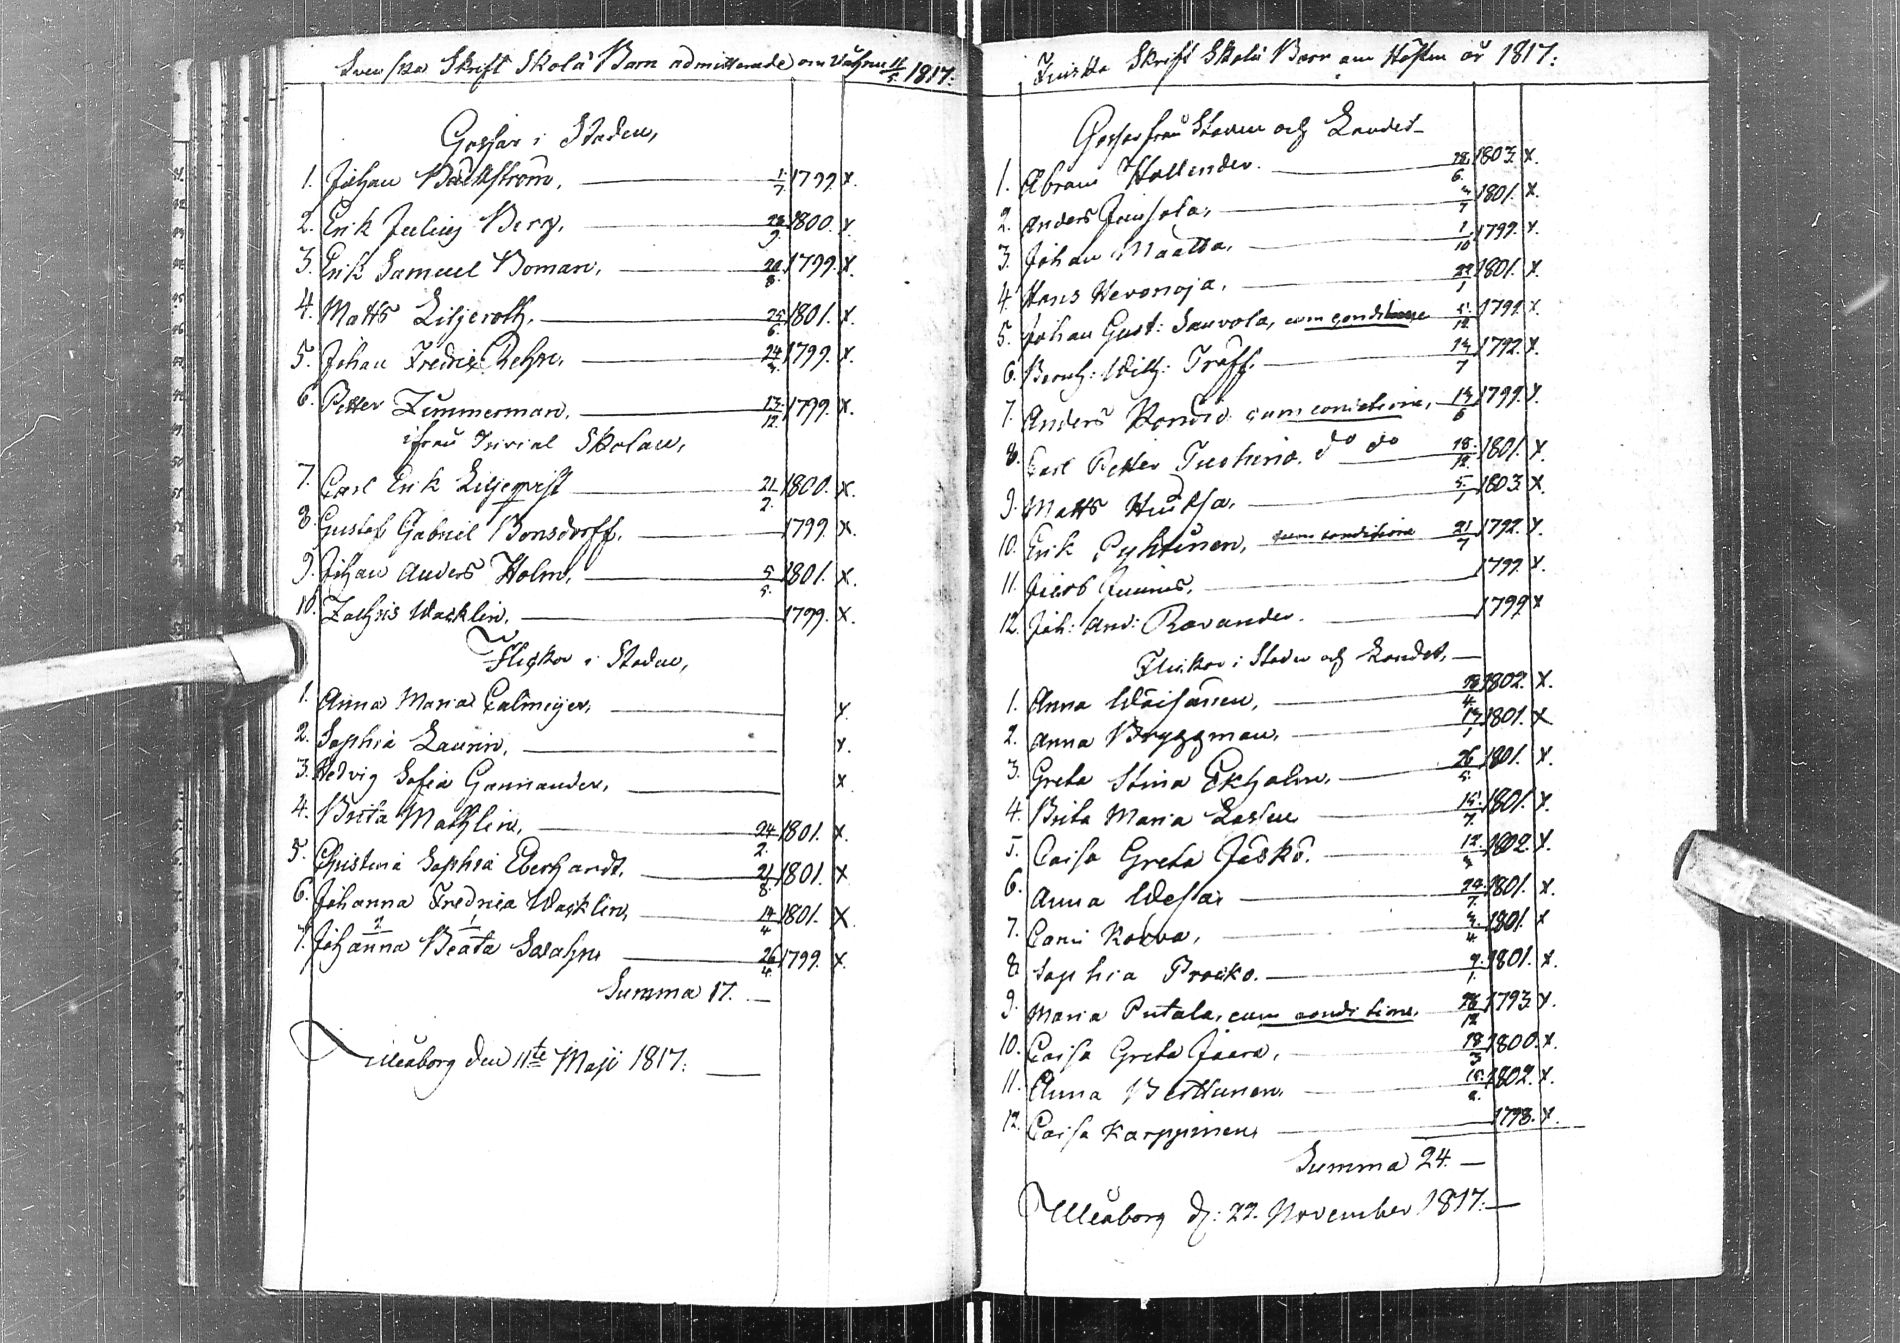 Svenska Skrift Skolä Barn admitterade om Våhren 11/5 1817.
Gossar i Staden,
1. Johan Bäckström, 1/7 1799. x.
2. Erik Julius Berg, 28/9 1800. x.
3. Erik Samuel Boman, 20/8 1799. x.
4. Matts Liljeroth, 25/6 1801. x.
5. Johan Fredric Rehn, 24/ 1799. x.
6. Petter Zimmerman, 13/12 1799. x.
ifrån Trivial Skolan,
7. Carl Erik Liljeqvist 21/2 1800. x.
8. Gustaf Gabriel Bonsdorff, 1799. x.
9. Johan Anders Holm, 5/5 1801. x.
10. Zachris Wacklin, 1799. x.
Flickor i Staden,
1. Anna Maria Calmeijer, x.
2. Sophia Laurin, x.
3. Hedvig Sofia Gannander, x
4. Brita Mathlin, 24/2 1801. x.
5. Christina Sophia Eberhardt, 21/8 1801. x
6. Johanna Fredrica Wacklin, 14/4 1801. x
7. Johanna Beata 26/4 1799. x.
Summa 17.
Uleåborg den 11te Maji 1817.
Finska Skrift Skolä Barn om Hösten år 1817.
Gossar från Staden och Landet
1. Abram Hollender. 28/6 1803. x.
2. Anders 3/7 1801. x.
3. Johan Määtta, 1/10 1799. x.
4. Hans Hevonoja, 29/1 1801. x.
5. Johan Gust: Sauvola, cum conditione 5/12 1799. x.
6. Bernh: Wilh: Träff. 13/7 1792. x.
7. Anders cum conditione, 13/6 1799. x.
8. Carl Petter do do 18/12 1801. x.
9. Matts 5/1 1803. x.
10. Erik Pyhtinen, cum conditione 21/7 1792. x.
11. Jacob Junnus, 1799. x.
12. Joh: And: Ravander. 1799 x
Flickor i Staden och Landet,
1. Anna Wäisänen, 18/4 1802. x.
2. Anna Bryggman, 13/1 1801. x
3. Greta Stina Ekholm, 26/5 1801. x.
4. Brita Maria 15/7 1801. x.
5. Caisa Greta Jäskö. 12/3 1802. x.
6. Anna 24/7 1801. x.
7. Carin Korva, 3/4 1801. x
8. Sophia Procko. 9/1 1801. x.
9. Maria Putala, cum conditione, 26/12 1793. x.
10. Caisa Greta Jaara, 18/3 1800. x.
11. Anna Berttunen, 15/ 1802. x.
12. Caisa Karppinen, 1798. x.
Summa 24.
Uleåborg d: 22. November 1817.